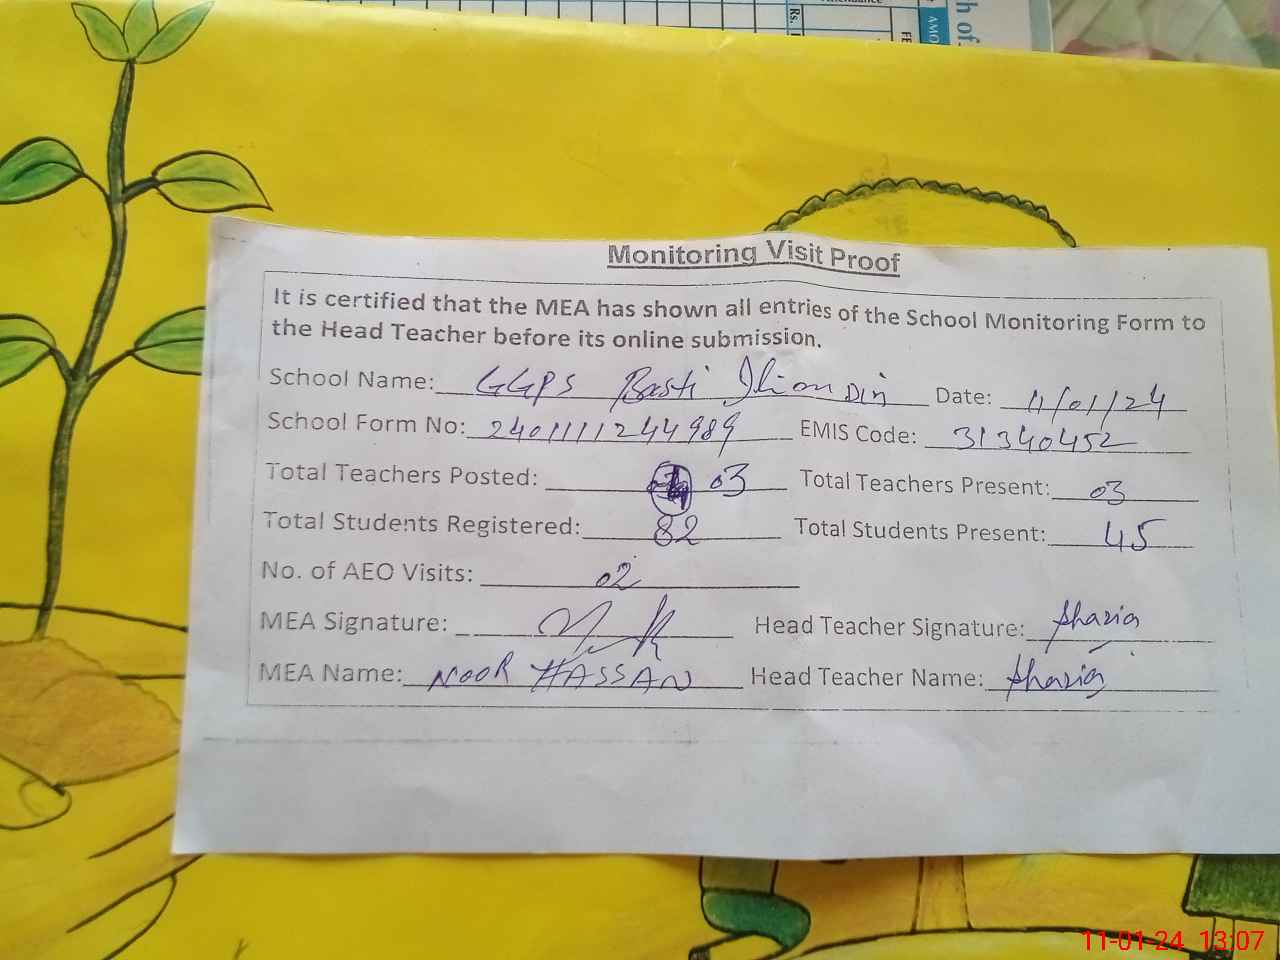 h of
AMO
FE
Rs.
Monitoring Visit Proof
It is certified that the MEA has shown all entries of the School Monitoring Form to
the Head Teacher before its online submission.
School Name: GGPS Basti Din Date: 11/01/24
School Form No: 2401111244989 EMIS Code: 31340452
Total Teachers Posted: 03 Total Teachers Present: 03
Total Students Registered: 82 Total Students Present: 45
No. of AEO Visits: 02
MEA Signature: Head Teacher Signature: Shazia
MEA Name: NOOR HASSAN Head Teacher Name: Shazia
11-01-24 13:07